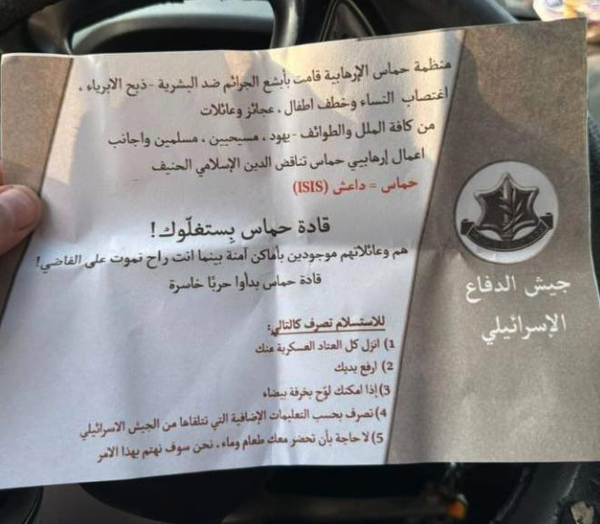 منظمة حماس الإرهابية قامت بأبشع الجرائم ضد البشرية -ذبح الابرياء ،
اغتصاب النساء وخطف اطفال ، عجائز وعائلات
من كافة الملل والطوائف - يهود ، مسيحيين ، مسلمين واجانب
اعمال إرهابيي حماس تناقض الدين الإسلامي الحنيف
حماس = داعش (ISIS)
قادة حماس بِستغلّوك!
هم وعائلاتهم موجودين بأماكن آمنة بينما انت راح تموت على الفاضي!
قادة حماس بدأوا حربًا خاسرة
للاستسلام تصرف كالتالي:
1) انزل كل العتاد العسكرية عنك
2) ارفع يديك
3) إذا امكنك لوّح بخرقة بيضاء
4) تصرف بحسب التعليمات الإضافية التي تتلقاها من الجيش الاسرائيلي
5) لا حاجة بأن تحضر معك طعام وماء ، نحن سوف نهتم بهذا الامر
جيش الدفاع
الإسرائيلي